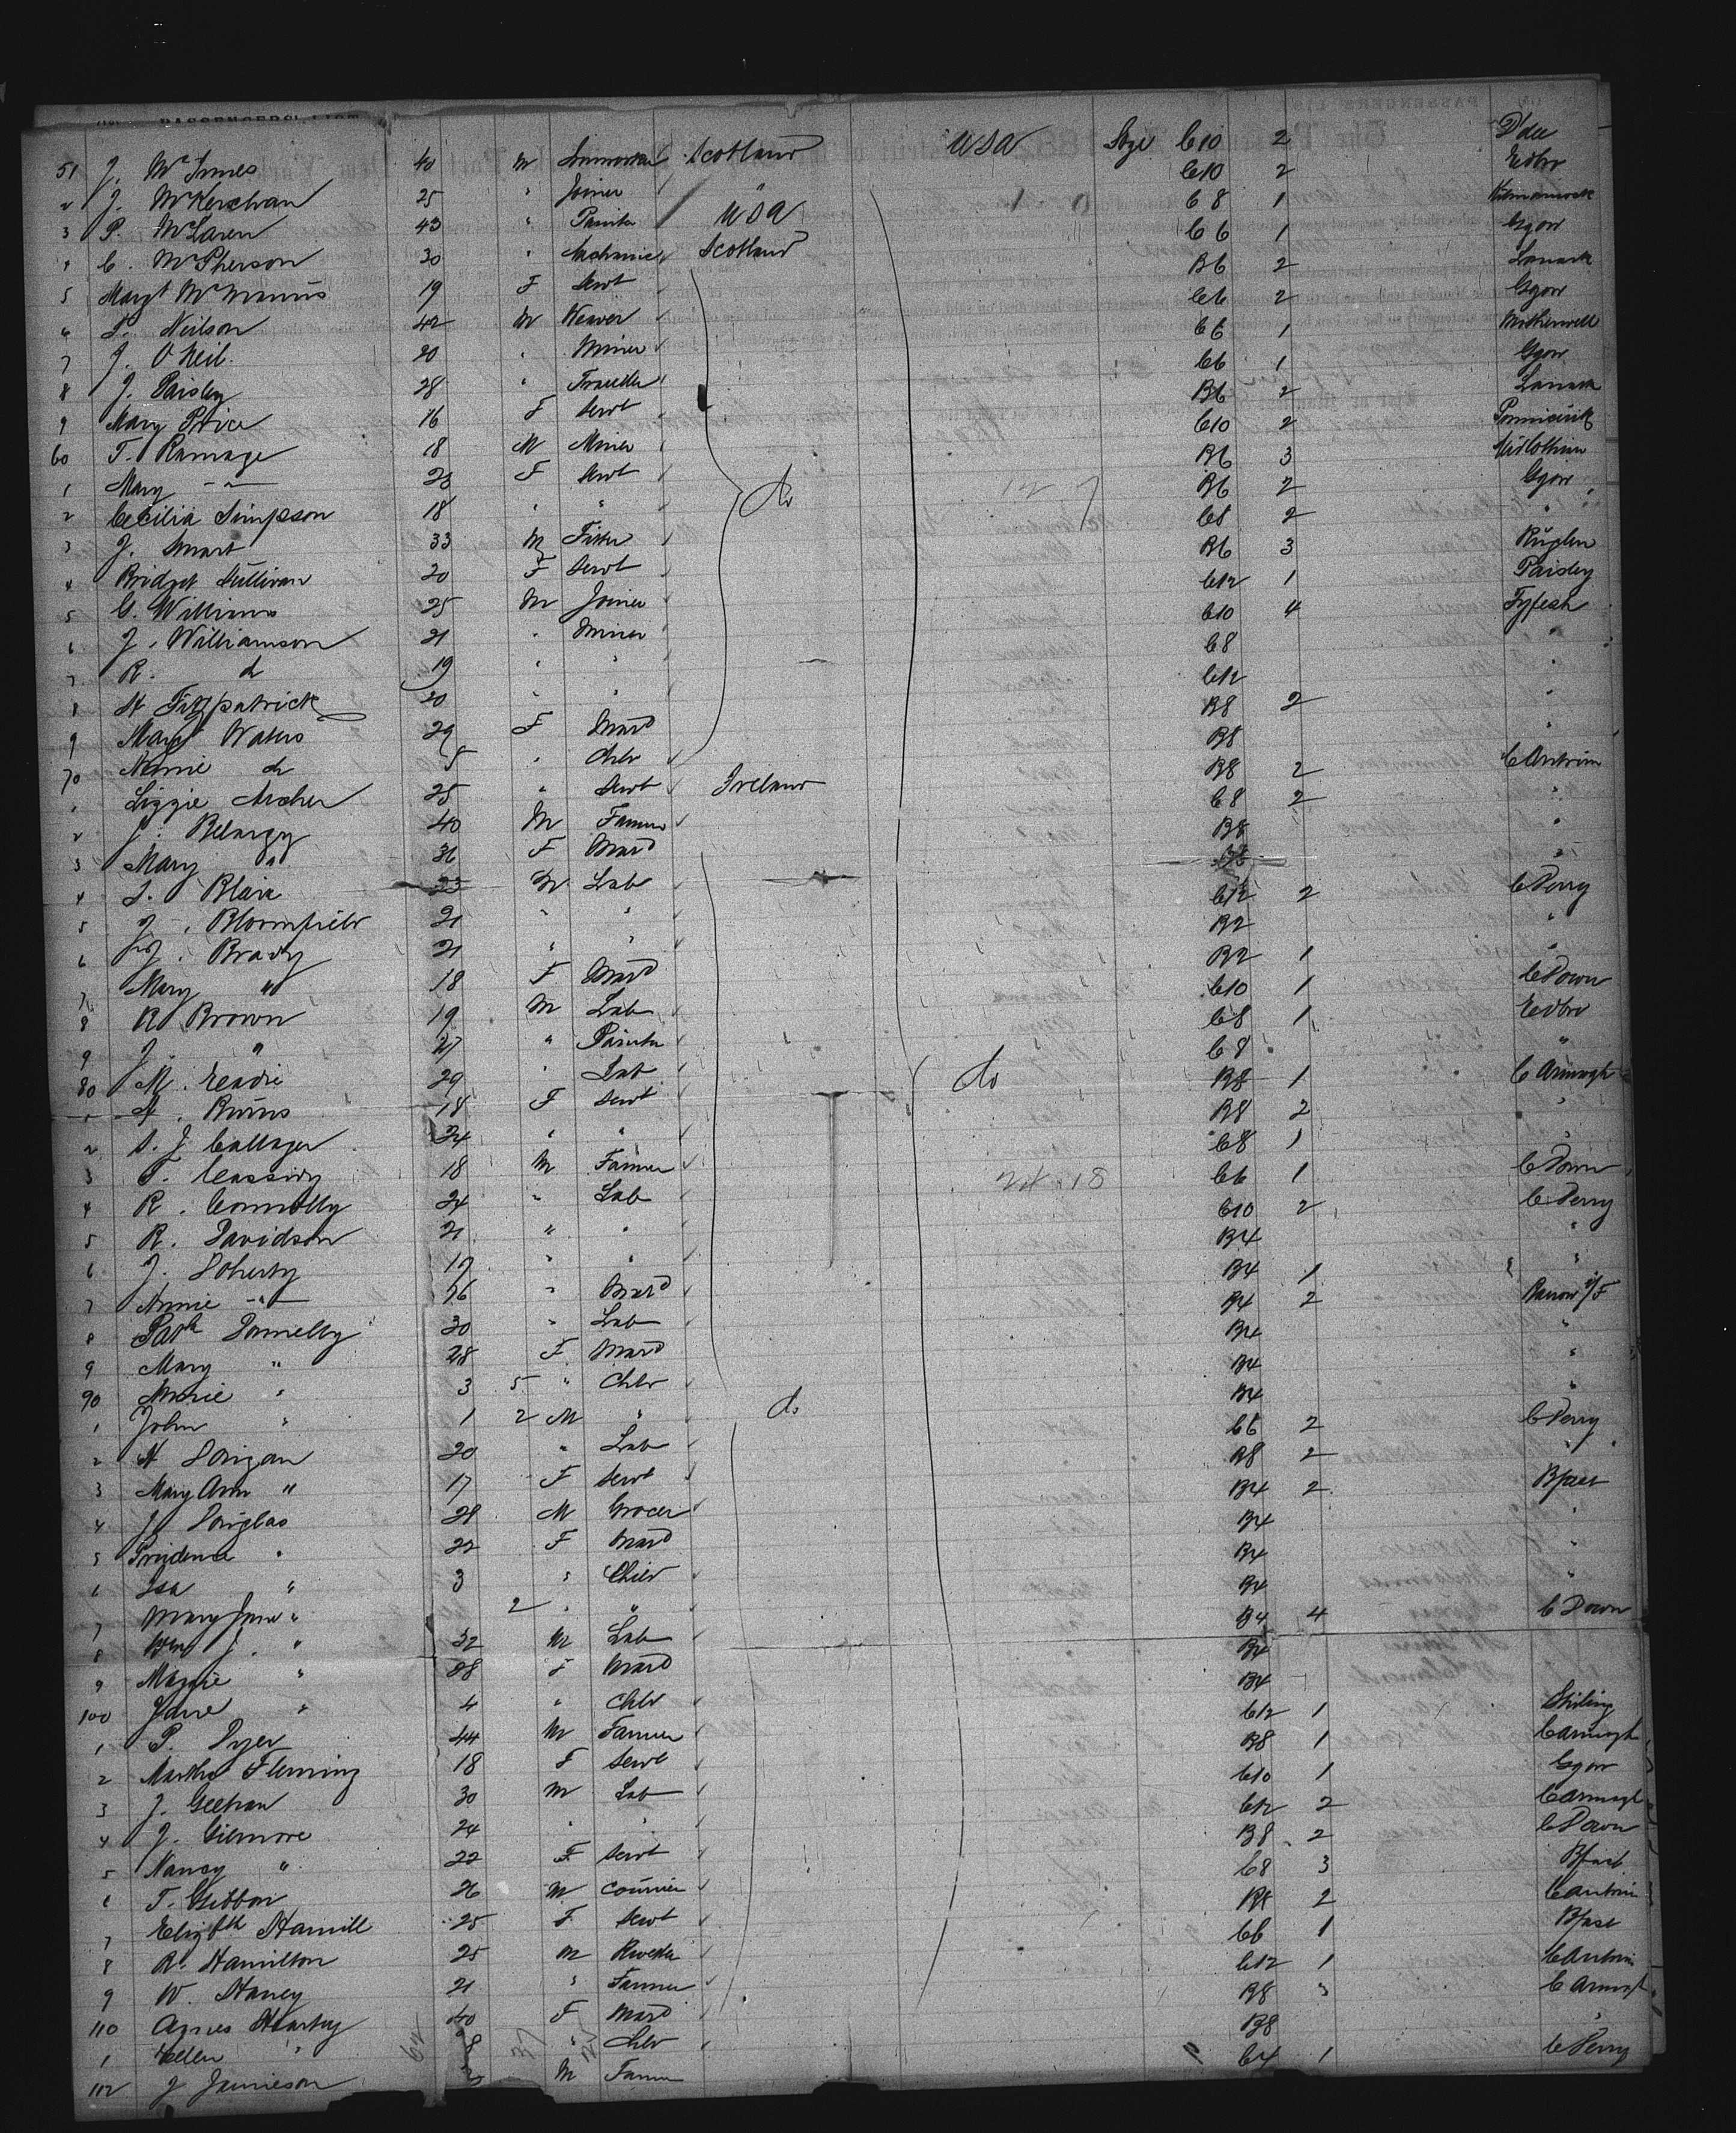 PASSENGERS' LIST
51 J. McInnes 40 M Scotland USA Stge C10 2 D'dee
2 J. McKerchran 25 " Joiner C10 2 Edbro
3 P. McLaren 43 " Painter USA C8 1 Kilmarnock
4 C. McPherson 30 " Mechanic Scotland C6 1 Glgow
5 Margt McManus 19 F Servt B6 2 Lanark
6 T. Neilson 42 M Weaver C6 2 Glgow
7 J. O'Neil 20 " Miner C6 1 Motherwell
8 J. Paisley 28 " Traveller C6 1 Glgow
9 Mary Price 16 F Servt B6 2 Lanark
60 T. Ramage 18 M Miner C10 2 Pennicuik
1 Mary " 23 F Servt B6 3 Midlothian
2 Cecilia Simpson 18 " " do B6 2 Glgow
3 J. Smart 33 M Fitter C8 2 "
4 Bridget Sullivan 20 F Servt B6 3 Ruglen
5 G. Williams 25 M Joiner C12 1 Paisley
6 J. Williamson 21 " Miner C10 4 Fyfesh
7 R. do 19 " " C8 "
8 H Fitzpatrick 20 " " C12 "
9 Margt Waters 29 F Mard B8 2 "
70 Nannie do 5 " Chld B8 "
1 Lizzie Archer 25 " Servt Ireland B8 2 C Antrim
2 J. Belargy 40 M Farmer C8 2 "
3 Mary " 36 F Mard B8 "
4 S. Blair 23 M Lab "
5 J. Bloomfield 21 " " C12 2 C Derry
6 J. Brady 21 " " B2 "
7 Mary " 18 F Mard B2 1 "
8 R Brown 19 M Lab C10 1 C Down
9 J. " 27 " Painter C8 1 Edbro
80 M. Eadie 29 " Lab do C8 "
1 A. Burns 18 F Servt B8 1 C Armagh
2 S. J. Callager 24 " " B8 2 "
3 T. Cassidy 18 M Farmer C8 1 "
4 R. Connolly 24 " Lab C6 1 C Down
5 R. Davidson 21 " " C10 2 C Derry
6 J. Doherty 17 " " B4 "
7 Annie " 16 " Mard B4 1 "
8 Patk Donnelly 30 " Lab B4 2 Barrow i/F
9 Mary " 28 F Mard B4 "
90 Annie " 3 5 " Chld B4 "
1 John " 1 2 M " do B4 "
2 H Dorigan 20 " Lab C6 2 C Derry
3 Mary Ann " 17 F Servt B8 2 "
4 J. Douglas 28 M Grocer B4 2 Bfast
5 Prudence " 22 F Mard B4 "
6 Isa " 3 " Child B4 "
7 Mary Jane " 2 " " B4 "
8 Wm J. " 32 M Lab B4 4 C Down
9 Maggie " 28 F Mard B4
100 Jane " 4 " Chld B4
1 P. Dyer 44 M Farmer C12 1 Stirling
2 Martha Fleming 18 F Servt B8 1 C Armagh
3 J. Geehan 30 M Lab C10 1 Glgow
4 J. Gilmore 24 " " C12 2 C Armagh
5 Nancy " 22 F Servt B8 2 C Down
6 T. Gibbon 26 M C8 3 Bfast
7 Elizbth Hamill 25 F Servt B8 2 C Antrim
8 R. Hamilton 25 M Riveter C6 1 Bfast
9 W. Haney 21 " Farmer C12 1 C Antrim
110 Agnes 40 F Mard B8 3 C Armagh
1 Ellen " " Chld B8 "
112 J Jamieson M Farmer C4 1 C Derry